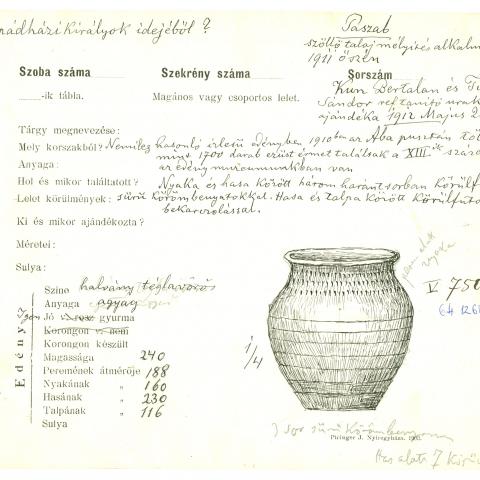 nádházi királyok idejéből ?
Paszab
szőllő talajmélyítés alkalm
1911 őszén
Szoba száma
Szekrény száma
Sorszám
-ik tábla.
Magános vagy csoportos lelet.
Kun Bertalan és
Sándor ref. tanító urak
ajándéka 1912 Május 2
Tárgy megnevezése:
Mely korszakból? Nemileg hasonló edényben 1910 ben az Aba pusztán töb
mint 1700 darab ezüst érmet találtak a XIII ik száza
Anyaga: az edény múzeumunkban van
Hol és mikor találtatott? Nyaka és hasa között három harántsorban körülf
Lelet körülmények: sűrű körömbenyomatokkal. Hasa és talpa között körülfutó
bekarcolással.
Ki és mikor ajándékozta?
Méretei:
Sulya:
Edény:
Szine halvány téglavörös
Anyaga agyag
Igen Jó v. rosz gyurma
Korongon v. nem
Korongon készült
Magassága 240
Peremének átmérője 188
Nyakának „ 160
Hasának „ 230
Talpának „ 116
Sulya
1/4
nyaka
V 750
64 126
) sor sűrű körömbenyom
Piringer J. Nyiregyháza. 190
Has alatt 7 körül